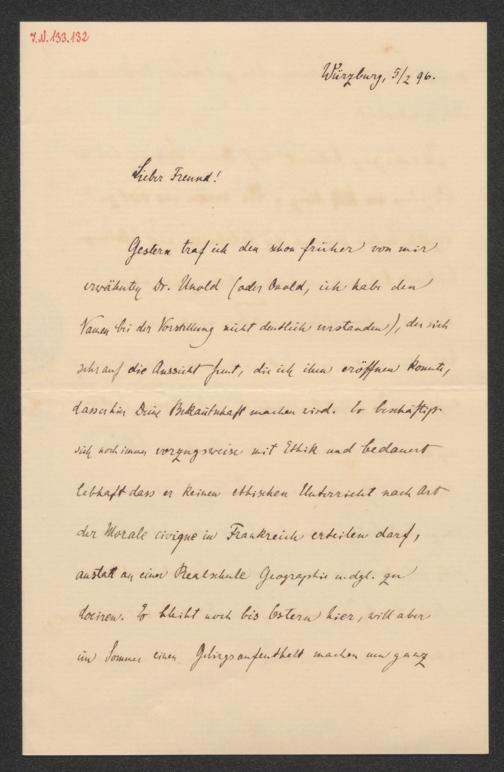 I.N. 133.132
Würzburg, 5/2 96.
Lieber Freund!
Gestern traf ich den schon früher von mir
erwähnten Dr. Unold (oder Onold, ich habe den
Namen bei der Vorstellung nicht deutlich verstanden), der sich
sehr auf die Aussicht freut, die ich ihm eröffnen konnte,
dass er hier Deine Bekanntschaft machen wird. Er beschäftigt
sich noch immer vorzugsweise mit Ethik und bedauert
lebhaft dass er keinen ethischen Unterricht nach Art
der Morale civique in Frankreich erteilen darf,
anstatt an einer Realschule Geographie u. dgl. zu
docieren. Er bleibt noch bis Ostern hier, will aber
im Sommer einen Gebirgsaufenthalt machen um ganz